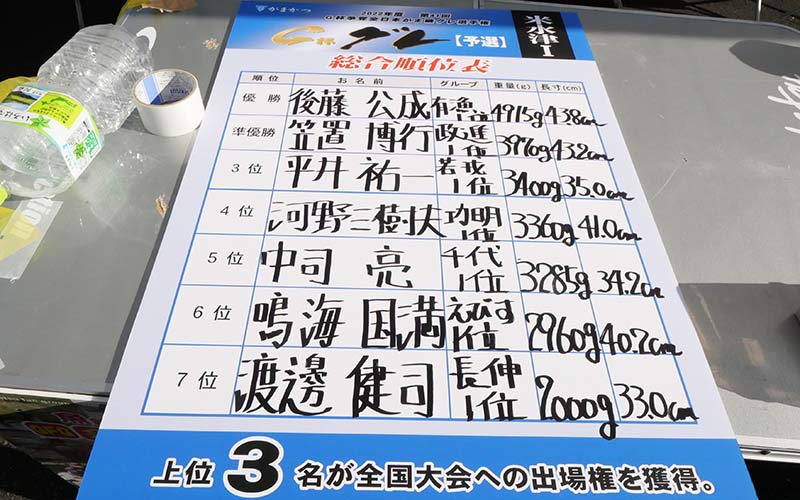 がまかつ
2022年度 第41回
G杯争奪全日本がま磯グレ選手権
G杯 グレ 【予選】
米水津Ⅰ
総合順位表
順位 お名前 グループ 重量(g) 長寸(cm)
優勝 後藤 公成 1位 4915g 43.8cm
準優勝 笠置 博行 政進 1位 3970g 43.2cm
3位 平井 祐一 若戎 1位 3400g 35.0cm
4位 河野三樹扶 功明 1位 3360g 41.0cm
5位 中司 亮 千代 1位 3285g 34.2cm
6位 鳴海 国満 えびす 1位 2960g 40.2cm
7位 渡邊 健司 長伸 1位 2000g 33.0cm
上位3名が全国大会への出場権を獲得。